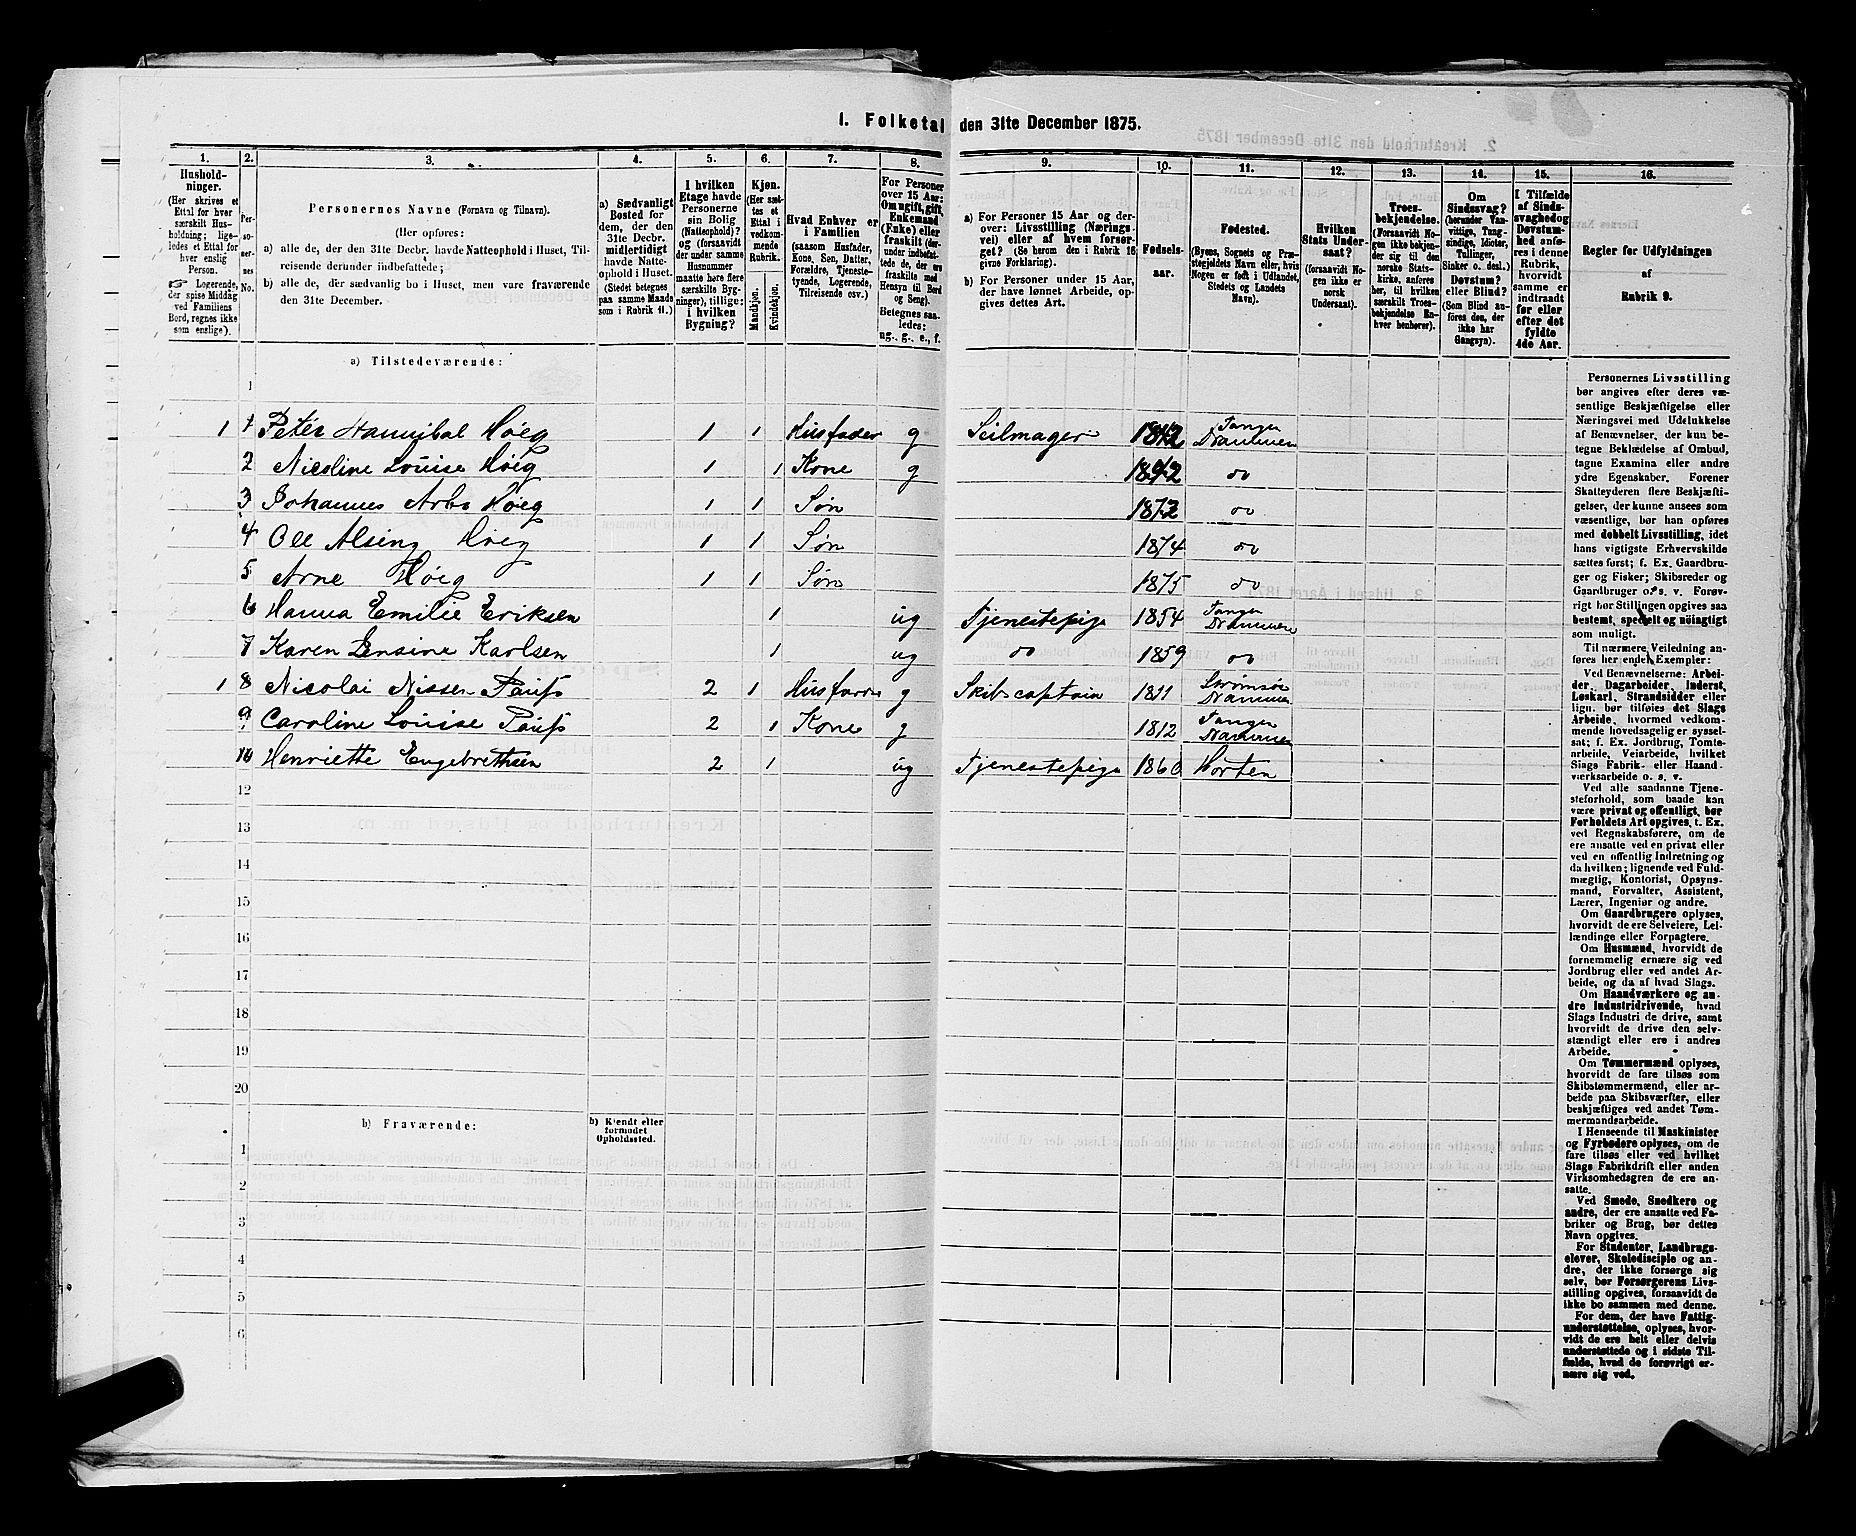 1. Folketal den 31te December 1875.
1. 2. 3. 4. 5. 6. 7. 8. 9. 10. 11. 12. 13. 14. 15. 16.
Hushold-
ninger.
(Her skrives et
Ettal for hver
særskilt Hus-
holdning; lige-
ledes et Ettal for
hver enslig
Person.
☞ Logerende,
der spise Middag
ved Familiens
Bord, regnes ikke
som enslige).
Per-
so-
ner-
nes
No.
Personernes Navne (Fornavn og Tilnavn).
(Her opføres:
a) alle de, der den 31te Decbr. havde Natteophold i Huset, Til-
reisende derunder indbefattede;
b) alle de, der sædvanlig bo i Huset, men vare fraværende
den 31te December.
a) Sædvanligt
Bosted for
dem, der den
31te Decbr.
midlertidigt
havde Natte-
ophold i Huset.
(Stedet betegnes
paa samme Maade
som i Rubrik 11.)
I hvilken
Etage havde
Personerne
sin Bolig
(Natteophold)?
og (forsaavidt
der under samme
Husnummer
maatte høre flere
særskilte Byg-
ninger), tillige:
i hvilken
Bygning?
Kjøn.
(Her sæt-
tes et
Ettal i
vedkom-
mende
Rubrik.
Mandkjøn.
Kvindekjøn.
Hvad Enhver er
i Familien
(saasom Husfader,
Kone, Søn, Datter,
Forældre, Tjeneste-
tyende, Logerende,
Tilreisende osv.)
For Personer
over 15 Aar:
Om ugift, gift,
Enkemand
(Enke) eller
fraskilt (der-
under indbefat-
tede de, der ere
fraskilte med
Hensyn til Bord
og Seng).
Betegnes saa-
ledes:
ug., g., e., f.
a) For Personer 15 Aar og der-
over: Livsstilling (Nærings-
vei) eller af hvem forsør-
get? (Se herom den i Rubrik 16
givne Forklaring).
b) For Personer under 15 Aar,
der have lønnet Arbeide, op-
gives dettes Art.
Fødsels-
aar.
Fødested.
(Byens, Sognets og Præ-
stegjeldets Navn eller, hvis
Nogen er født i Udlandet,
Stedets og Landets
Navn).
Hvilken
Stats Under-
saat?
(forsaavidt No-
gen ikke er
norsk
Undersaat).
Troes-
bekjendelse.
(Forsaavidt No-
gen ikke bekjen-
der sig til den
norske Stats-
kirke, anføres
her, til hvilken
særskilt Troes-
bekjendelse En-
hver henhører).
Om
Sindssvag?
(herunder Van-
vittige, Tung-
sindige, Idioter,
Tullinger,
Sinker o. desl.)
Døvstum?
eller Blind?
(Som Blind an-
føres den, der
ikke har
Gangsyn).
I Tilfælde
af Sinds-
svaghed og
Døvstum-
hed anfø-
res i denne
Rubrik,
hvorvidt
samme er
indtraadt
før eller
efter det
fyldte
4de Aar.
Regler for Udfyldningen
af
Rubrik 9.
a) Tilstedeværende:
1
1 1 Peter Hannibal Høeg 1 1 Husfader g Seilmager 1842 Tangen Drammen
2 Nicoline Louise Høeg 1 1 Kone g 1842 do
3 Johannes Arbo Høeg 1 1 Søn 1872 do
4 Ole Alsing Høeg 1 1 Søn 1874 do
5 Arne Høeg 1 1 Søn 1875 do
6 Hanna Emilie Eriksen 1 ug Tjenestepige 1854 Tangen Drammen
7 Karen Lensine Karlsen 1 ug do 1859 do
1 8 Nicolai Nissen Paus 2 1 Husfader g Skibscaptain 1811 Strømsø Drammen
9 Caroline Louise Paus 2 1 Kone g 1812 Tangen Drammen
10 Henriette Engebrethsen 2 1 ug Tjenestepige 1860 Horten
12
13
14
15
16
17
18
19
20
b) Fraværende:
b) Kjendt eller
formodet
Opholdssted.
1
2
3
4
5
6
Personernes Livsstilling
bør angives efter deres væ-
sentlige Beskjæftigelse eller
Næringsvei med Udelukkelse
af Benævnelser, der kun be-
tegne Beklædelse af Ombud,
tagne Examina eller andre
ydre Egenskaber. Forener
Skatteyderen flere Beskjæfti-
gelser, der kunne ansees som
væsentlige, bør han opføres
med dobbelt Livsstilling, idet
hans vigtigste Erhvervskilde
sættes først; f. Ex. Gaardbru-
ger og Fisker; Skibsreder og
Gaardbruger o. s. v. Forøv-
rigt bør Stillingen opgives saa
bestemt, specielt og nöiagtigt
som muligt.
Til nærmere Veiledning an-
føres her endel Exempler:
Ved Benævnelserne: Arbei-
der, Dagarbeider, Inderst,
Løskarl, Strandsidder eller
lign. bør tilføies det Slags
Arbeide, hvormed vedkom-
mende hovedsagelig er syssel-
sat; f. Ex. Jordbrug, Tomte-
arbeide, Veiarbeide, hvilket
Slags Fabrik- eller Haand-
værksarbeide o. s. v.
Ved alle saadanne Tjene-
steforhold, som baade kan
være privat og offentligt, bør
Forholdets Art opgives, t. Ex.
ved Regnskabsførere, om de
ere ansatte ved en privat eller
ved en offentlig Indretning og
da hvilken; lignende ved Fuld-
mægtig, Kontorist, Opsyns-
mand, Forvalter, Assistent,
Lærer, Ingeniør og andre.
Om Gaardbrugere oplyses,
hvorvidt de ere Selveiere, Lei-
lændinge eller Forpagtere.
Om Husmænd, hvorvidt de
fornemmelig ernære sig ved
Jordbrug eller ved andet Ar-
beide, og da af hvad Slags.
Om Haandværkere og an-
dre Industridrivende, hvad
Slags Industri de drive, samt
hvorvidt de drive den selv-
stændigt eller ere i andres
Arbeide.
Om Tømmermænd oplyses,
hvorvidt de fare tilsøs som
Skibstømmermænd, eller ar-
beide paa Skibsværfter, eller
beskjæftiges ved andet Tøm-
mermandsarbeide.
I Henseende til Maskinister
og Fyrbødere oplyses, om de
fare tilsøs eller ved hvilket
Slags Fabrikdrift eller anden
Virksomhedsgren de ere an-
satte.
Ved Smede, Snedkere og
andre, der ere ansatte ved Fa-
briker og Brug, bør dettes
Navn opgives.
For Studenter, Landbrugs-
elever, Skoledisciple og an-
dre, der ikke forsørge sig
selv, bør Forsørgerens Livs-
stilling opgives, forsaavidt de
ikke bo sammen med denne.
For dem, der have Fattig-
understøttelse, oplyses, hvor-
vidt de ere helt eller delvis
understøttede og i sidste Til-
fælde, hvad de forøvrigt er-
nære sig ved.